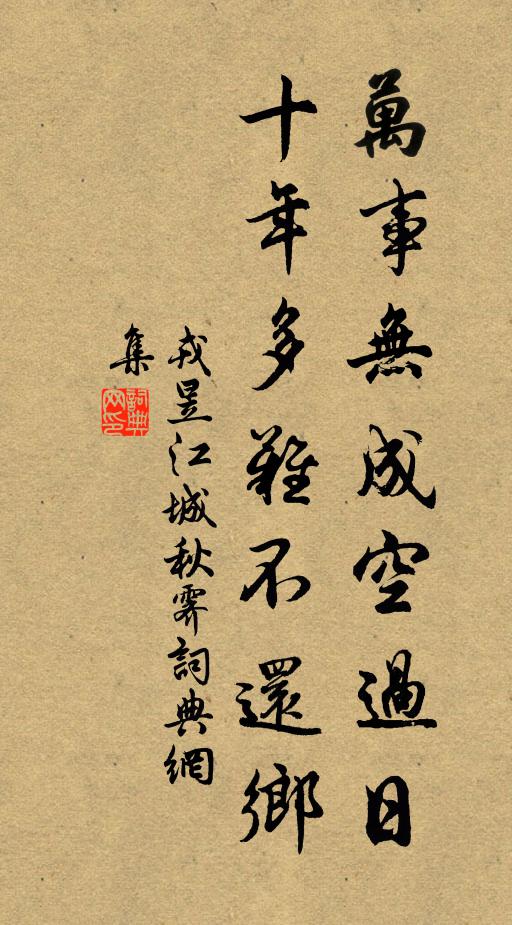 萬事無成空過日
十年多難不還鄉
戎昱江城秋霽詞典網
集
詞典網印